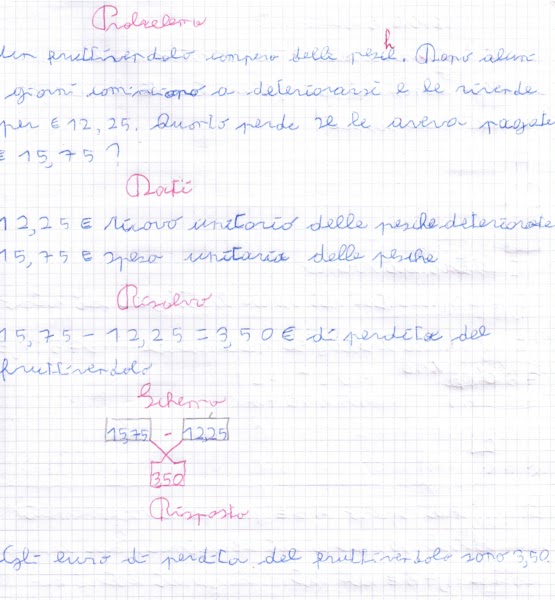 Problema
Un fruttivendolo compera delle pesche. Dopo alcuni
giorni cominciano a deteriorarsi e le rivende
per € 12,25. Quanto perde se le aveva pagate
€ 15,75?
Dati
12,25 € ricavo unitario delle pesche deteriorate
15,75 € spesa unitaria delle pesche
Risolvo
15,75 - 12,25 = 3,50 € di perdita del
fruttivendolo
Schema
15,75 - 12,25
3,50
Risposta
Gli euro di perdita del fruttivendolo sono 3,50.